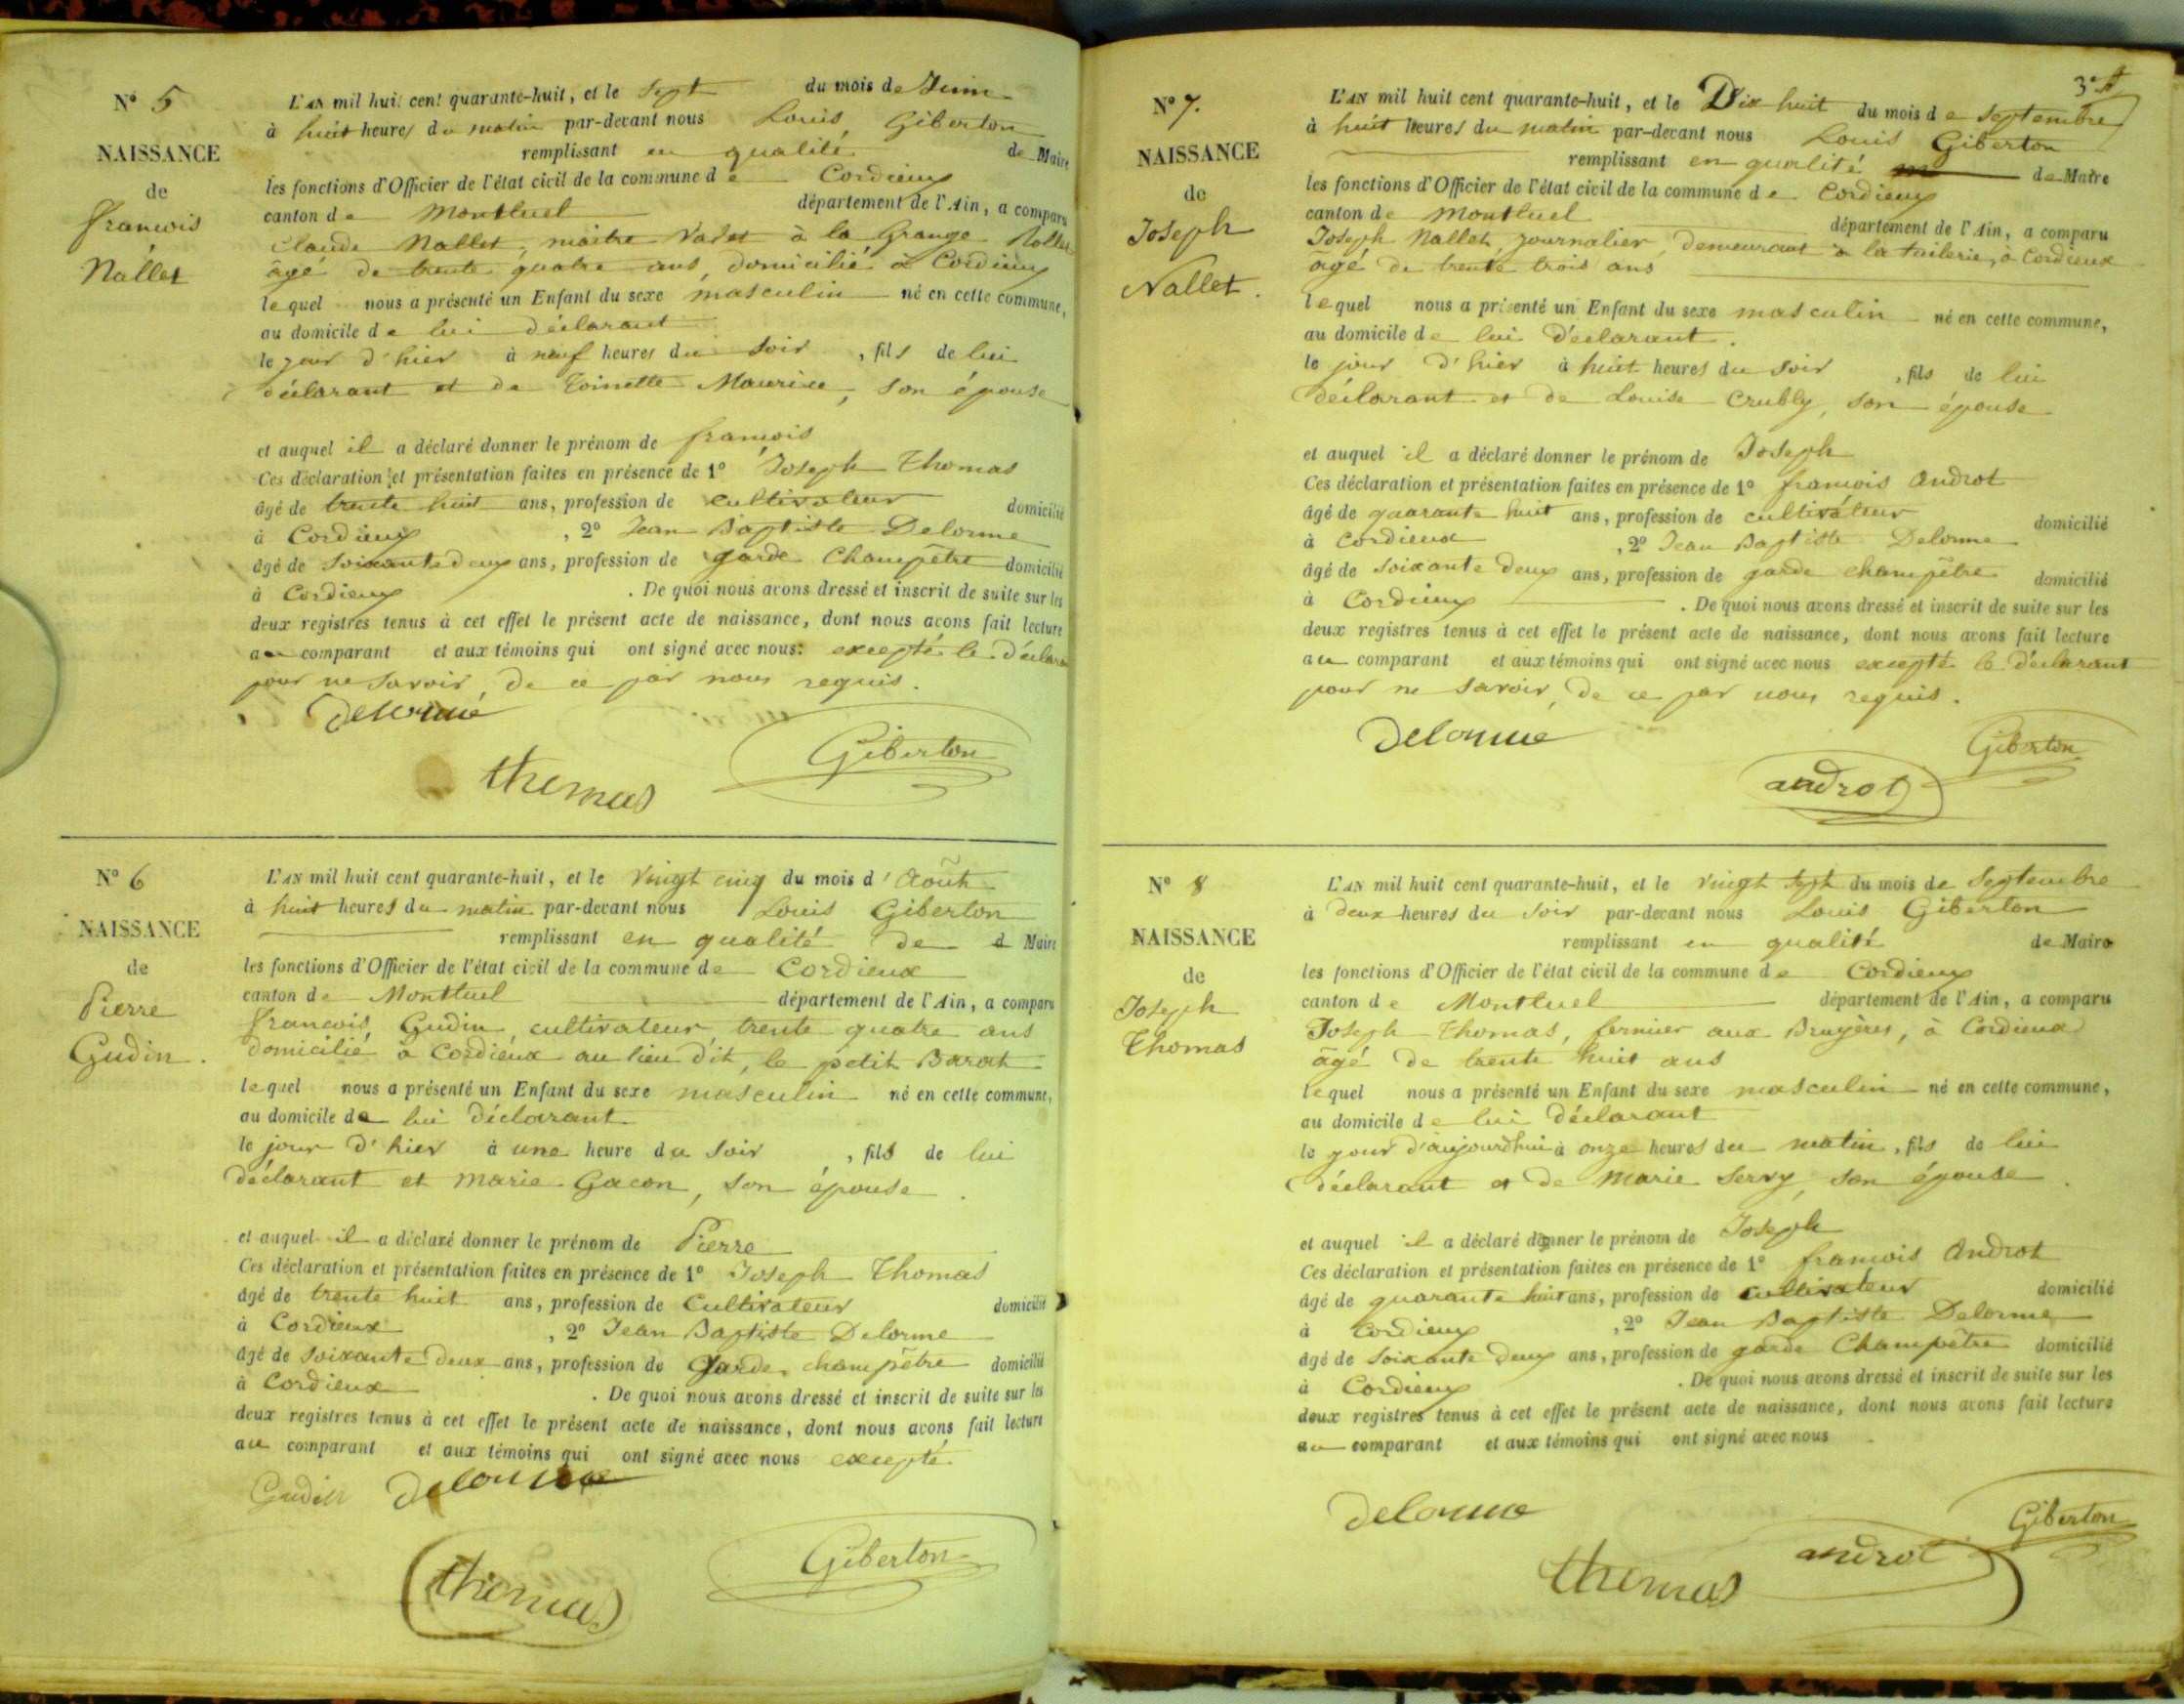 N° 5
NAISSANCE
de
francois
Nallet
L'AN mil huit cent quarante-huit, et le Sept du mois de Juin
à huit heures du matin par-devant nous Louis Giberton
remplissant en qualité de Maire
les fonctions d'Officier de l'état civil de la commune de Cordieux
canton de Montluel département de l'Ain, a comparu
Claude Nallet, maitre Valet à la Grange
âgé de trente quatre ans, domicilié à Cordieux
lequel nous a présenté un Enfant du sexe masculin né en cette commune,
au domicile de lui déclarant
le jour d'hier à neuf heures du Soir, fils de lui
déclarant et de Toinette Maurice, son épouse
et auquel il a déclaré donner le prénom de francois
Ces déclaration et présentation faites en présence de 1° Joseph Thomas
âgé de trente huit ans, profession de cultivateur domicilié
à Cordieux, 2° Jean Baptiste Delorme
âgé de Soixante deux ans, profession de garde Champêtre domicilié
à Cordieux. De quoi nous avons dressé et inscrit de suite sur les
deux registres tenus à cet effet le présent acte de naissance, dont nous avons fait lecture
au comparant et aux témoins qui ont signé avec nous: excepté le déclara
pour ne savoir, de ce par nous requis.
Delorme
thomas
Giberton
N° 6
NAISSANCE
de
Pierre
Gudin.
L'AN mil huit cent quarante-huit, et le Vingt cinq du mois d'Août
à huit heures du matin par-devant nous Louis Giberton
remplissant en qualité de d Maire
les fonctions d'Officier de l'état civil de la commune de Cordieux
canton de Montluel département de l'Ain, a comparu
francois Gudin, cultivateur, trente quatre ans
domicilié à Cordieux au lieu dit, le petit Barat
lequel nous a présenté un Enfant du sexe masculin né en cette commune,
au domicile de lui déclarant
le jour d'hier à une heure du Soir, fils de lui
déclarant et marie Gacon, son épouse.
et auquel il a déclaré donner le prénom de Pierre
Ces déclaration et présentation faites en présence de 1° Joseph Thomas
âgé de trente huit ans, profession de Cultivateur domicilié
à Cordieux, 2° Jean Baptiste Delorme
âgé de Soixante deux ans, profession de Garde champêtre domicilié
à Cordieux. De quoi nous avons dressé et inscrit de suite sur les
deux registres tenus à cet effet le présent acte de naissance, dont nous avons fait lecture
au comparant et aux témoins qui ont signé avec nous excepté
Gudin Delorme
thomas
Giberton
3e
N° 7.
NAISSANCE
de
Joseph
Nallet.
L'AN mil huit cent quarante-huit, et le Dix huit du mois de Septembre
à huit heures du matin par-devant nous Louis Giberton
remplissant en qualité de Maire
les fonctions d'Officier de l'état civil de la commune de Cordieux
canton de Montluel département de l'Ain, a comparu
Joseph Nallet, journalier, demeurant à la tuilerie, à Cordieux
âgé de trente trois ans
lequel nous a présenté un Enfant du sexe masculin né en cette commune,
au domicile de lui déclarant.
le jour d'hier à huit heures du Soir, fils de lui
déclarant et de Louise Crubly, son épouse
et auquel il a déclaré donner le prénom de Joseph
Ces déclaration et présentation faites en présence de 1° francois Androt
âgé de quarante huit ans, profession de cultivateur domicilié
à Cordieux, 2° Jean Baptiste Delorme
âgé de Soixante deux ans, profession de garde champêtre domicilié
à Cordieux. De quoi nous avons dressé et inscrit de suite sur les
deux registres tenus à cet effet le présent acte de naissance, dont nous avons fait lecture
au comparant et aux témoins qui ont signé avec nous excepté le déclarant
pour ne savoir, de ce par nous requis.
Delorme
Giberton
androt
N° 8
NAISSANCE
de
Joseph
Thomas
L'AN mil huit cent quarante-huit, et le Vingt Sept du mois de Septembre
à deux heures du Soir par-devant nous Louis Giberton
remplissant en qualité de Maire
les fonctions d'Officier de l'état civil de la commune de Cordieux
canton de Montluel département de l'Ain, a comparu
Joseph Thomas, fermier aux Bruyères, à Cordieux
âgé de trente huit ans
lequel nous a présenté un Enfant du sexe masculin né en cette commune,
au domicile de lui déclarant
le jour d'aujourdhui à onze heures du matin, fils de lui
déclarant et de Marie Servy, son épouse.
et auquel il a déclaré donner le prénom de Joseph
Ces déclaration et présentation faites en présence de 1° francois Androt
âgé de quarante huit ans, profession de Cultivateur domicilié
à Cordieux, 2° Jean Baptiste Delorme
âgé de Soixante deux ans, profession de garde Champêtre domicilié
à Cordieux. De quoi nous avons dressé et inscrit de suite sur les
deux registres tenus à cet effet le présent acte de naissance, dont nous avons fait lecture
au comparant et aux témoins qui ont signé avec nous
Delorme
Giberton
thomas
androt